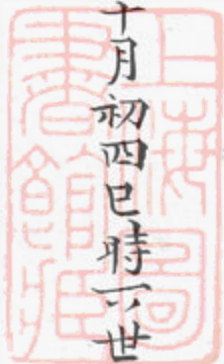 十月初四巳時下世
上海圖
書館藏